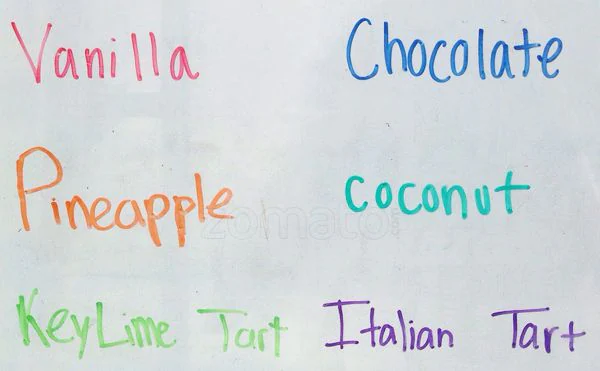 Vanilla Chocolate
Pineapple coconut
zomato
KeyLime Tart Italian Tart